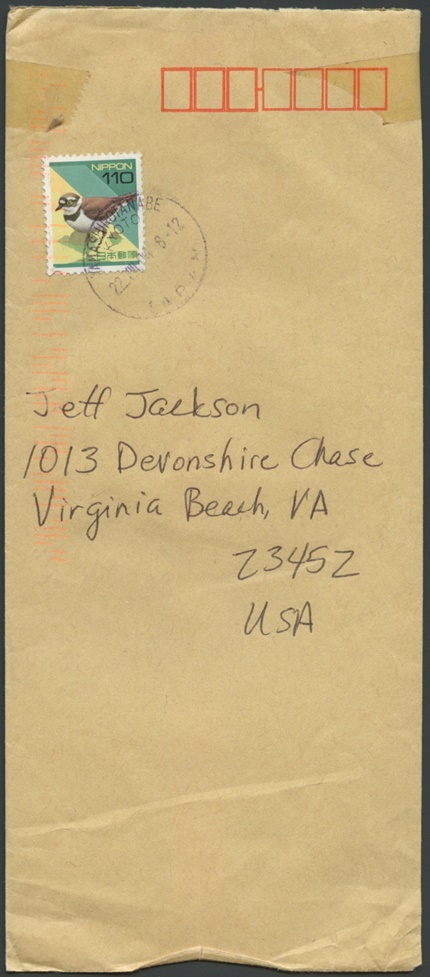 NIPPON
110
日本郵便
8-12
JAPAN
Jeff Jackson
1013 Devonshire Chase
Virginia Beach, VA
23452
USA